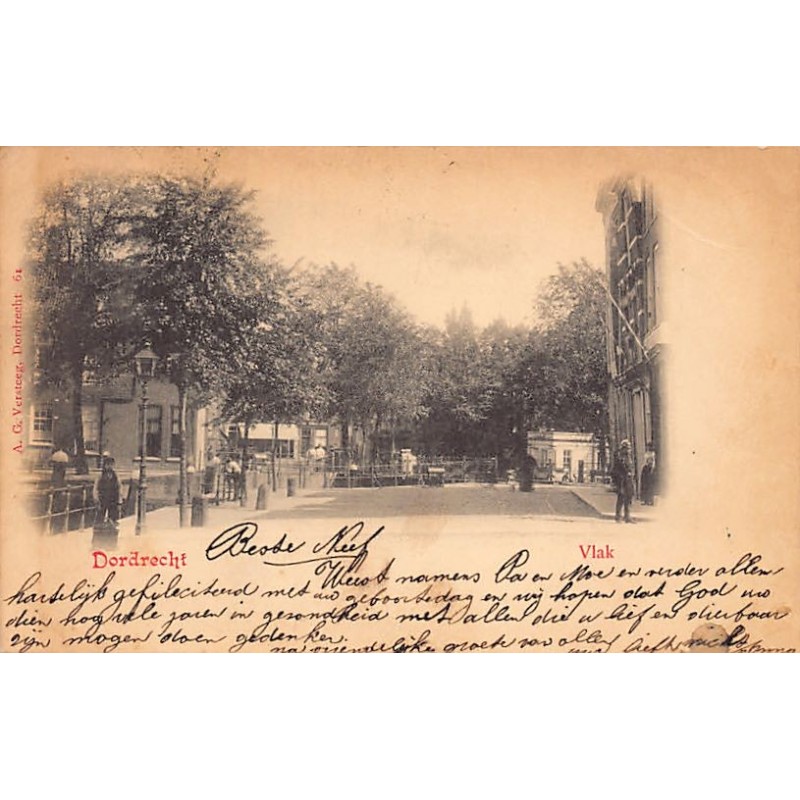 A. G. Versteeg, Dordrecht 61
Dordrecht
Vlak
Beste Neef
Weest namens Pa en Moe en verder allen
hartelijk gefiliciteerd met uw geboortedag en wij hopen dat God uw
dien nog vele jaren in gezondheid met allen die u lief en dierbaar
zijn mogen doen gedenken.
na vriendelijke groete van allen